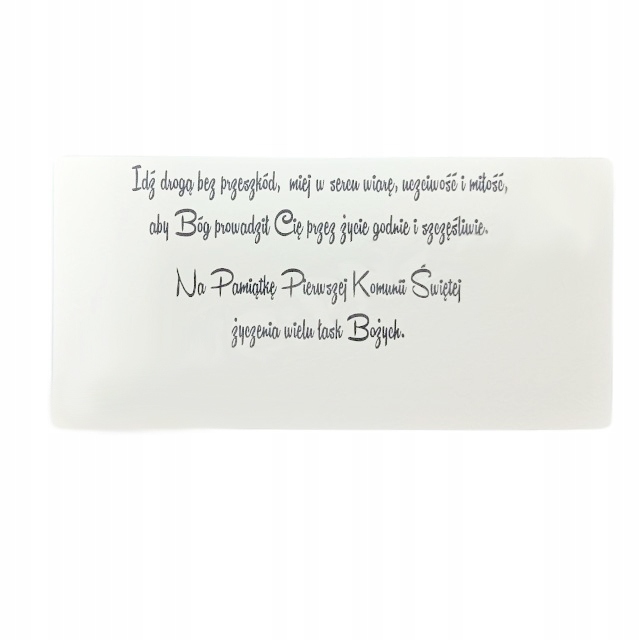 Idź drogą bez przeszkód, miej w sercu wiarę, uczciwość i miłość,
aby Bóg prowadził Cię przez życie godnie i szczęśliwie.
Na Pamiątkę Pierwszej Komunii Świętej
życzenia wielu łask Bożych.